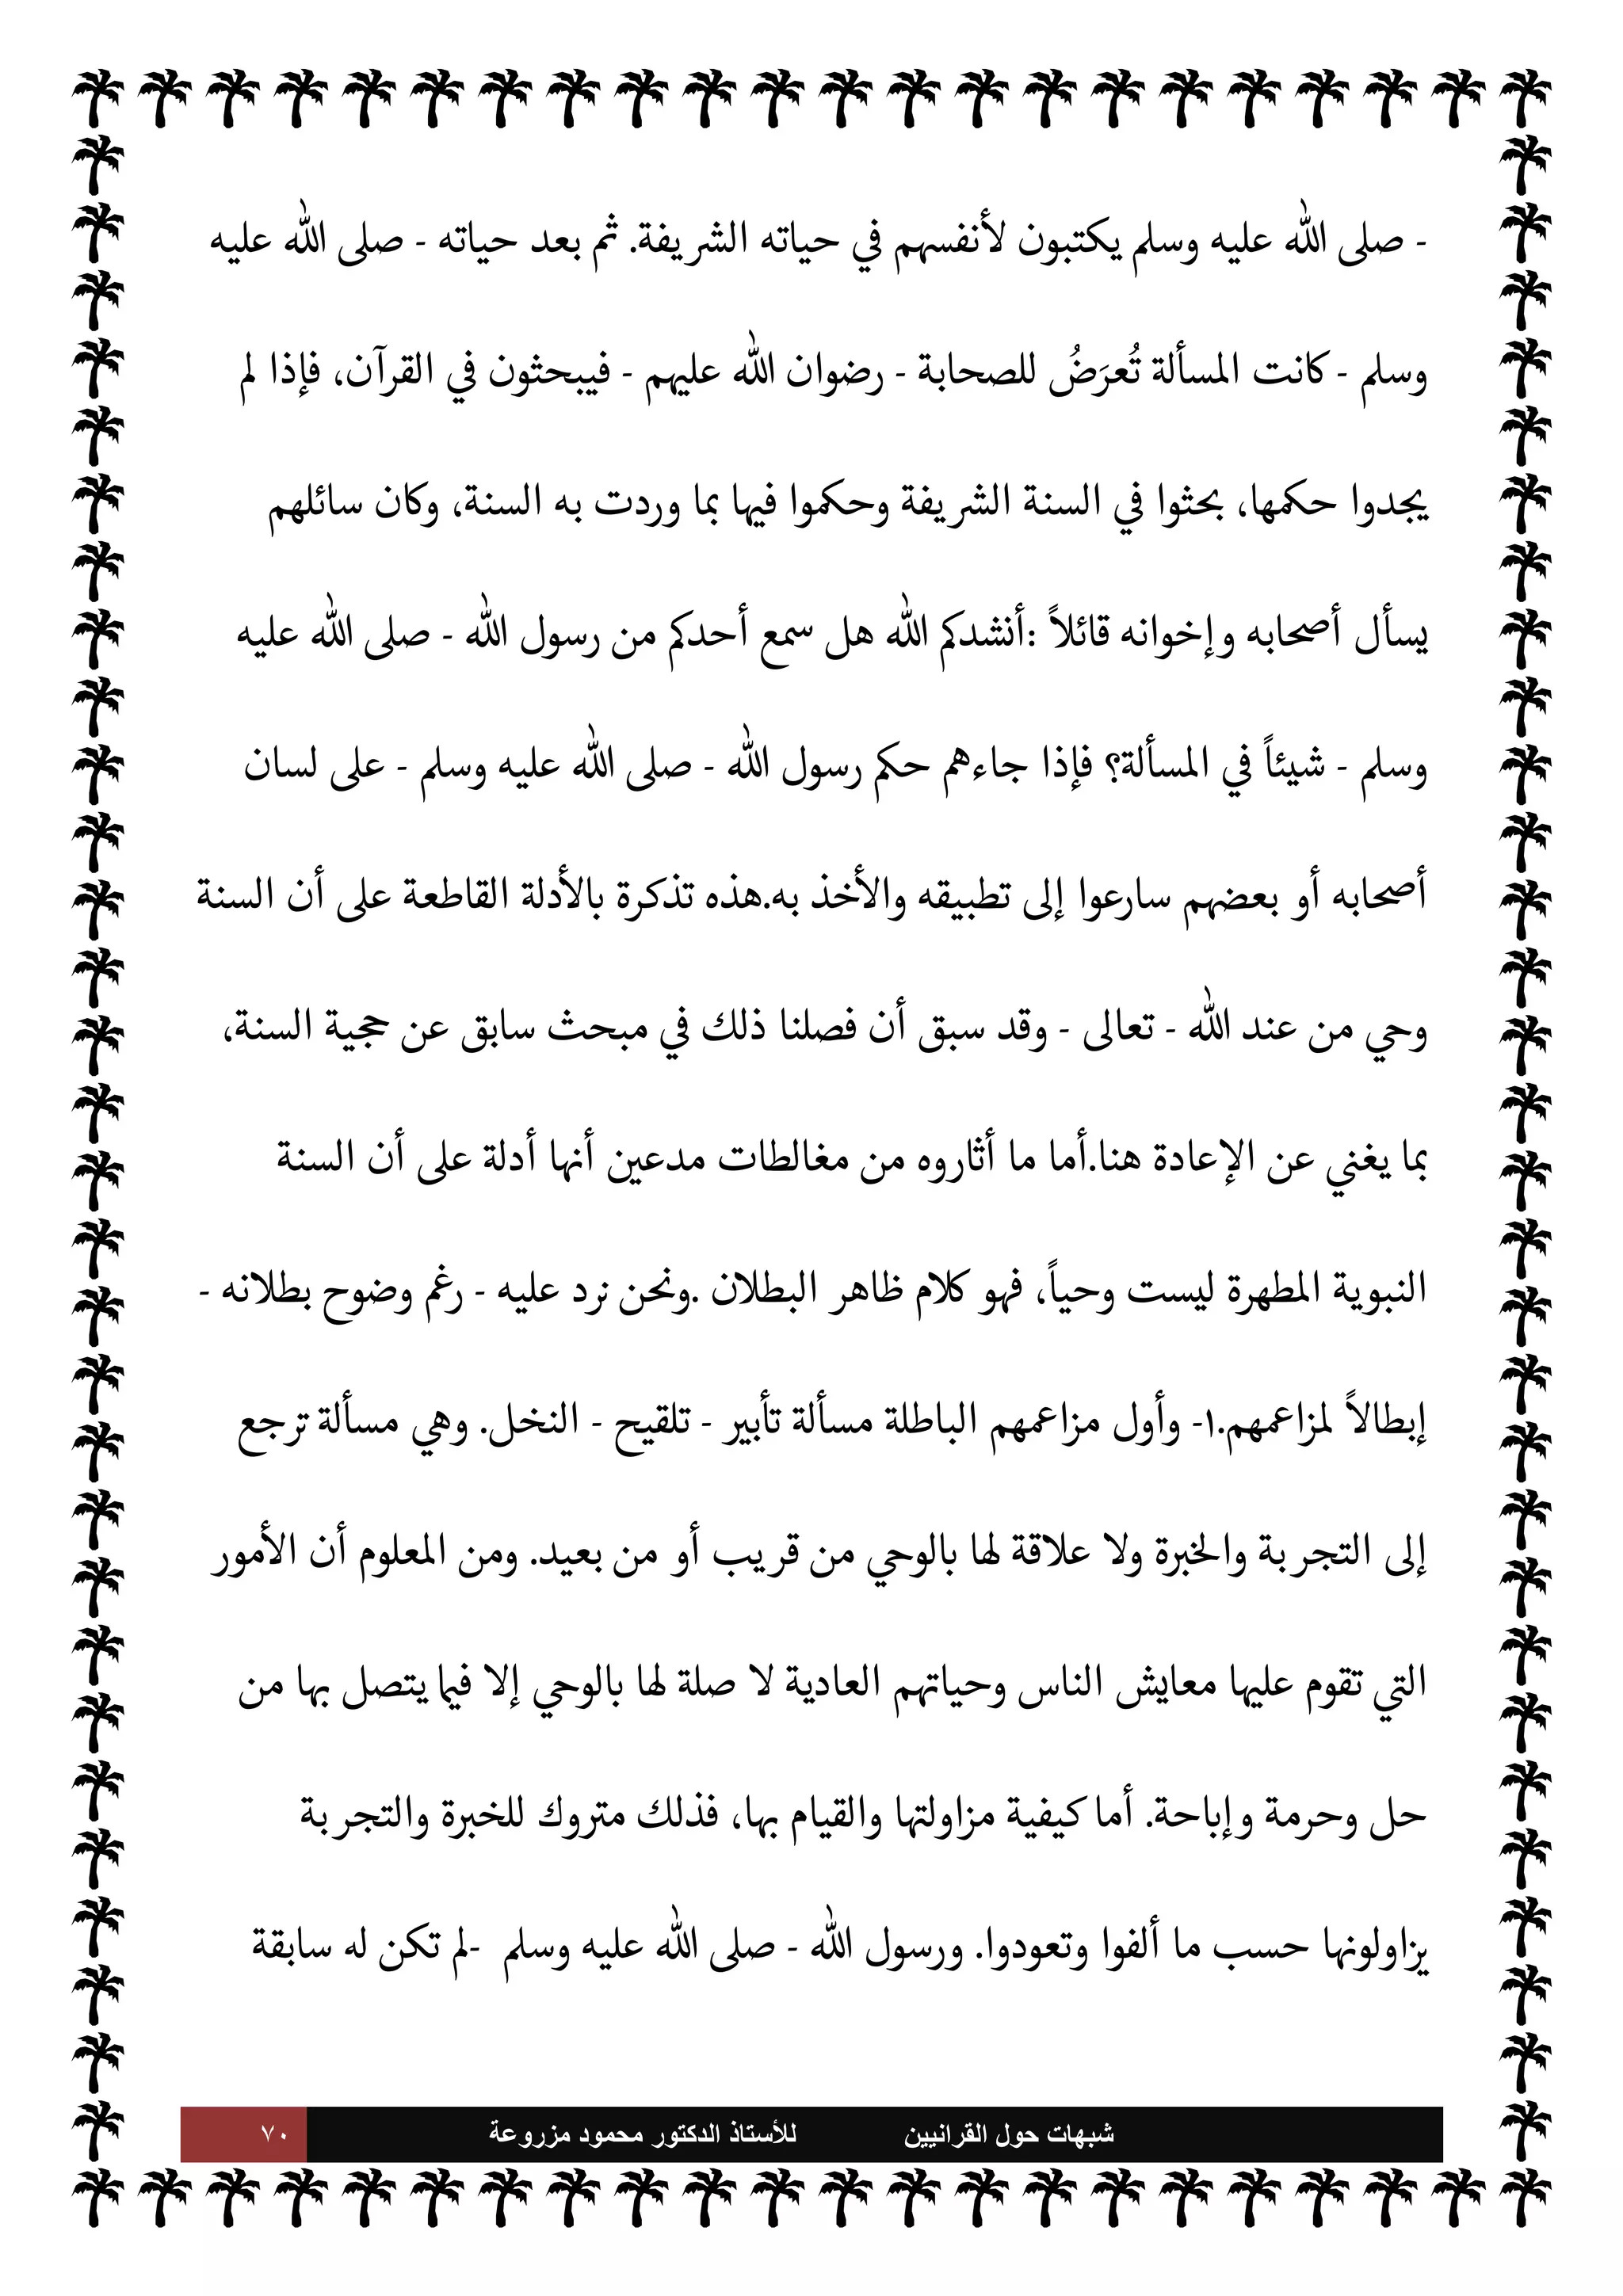 - صلى الله عليه وسلم يكتبون لأنفسهم في حياته الشريفة. ثم بعد حياته - صلى الله عليه
وسلم - كانت المسألة تُعرَضُ للصحابة - رضوان الله عليهم - فيبحثون في القرآن، فإذا لم
يجدوا حكمها، بحثوا في السنة الشريفة وحكموا فيها بما وردت به السنة، وكان سائلهم
يسأل أصحابه وإخوانه قائلاً :أنشدكم الله هل سمع أحدكم من رسول الله - صلى الله عليه
وسلم - شيئاً في المسألة؟ فإذا جاءهم حكم رسول الله - صلى الله عليه وسلم - على لسان
أصحابه أو بعضهم سارعوا إلى تطبيقه والأخذ به.هذه تذكرة بالأدلة القاطعة على أن السنة
وحي من عند الله - تعالى - وقد سبق أن فصلنا ذلك في مبحث سابق عن حجية السنة،
بما يغني عن الإعادة هنا.أما ما أثاروه من مغالطات مدعين أنها أدلة على أن السنة
النبوية المطهرة ليست وحياً، فهو كلام ظاهر البطلان .ونحن نرد عليه - رغم وضوح بطلانه -
إبطالاً لمزاعمهم.١- وأول مزاعمهم الباطلة مسألة تأبير - تلقيح - النخل. وهي مسألة ترجع
إلى التجربة والخبرة ولا علاقة لها بالوحي من قريب أو من بعيد. ومن المعلوم أن الأمور
التي تقوم عليها معايش الناس وحياتهم العادية لا صلة لها بالوحي إلا فيما يتصل بها من
حل وحرمة وإباحة. أما كيفية مزاولتها والقيام بها، فذلك متروك للخبرة والتجربة
يزاولونها حسب ما ألفوا وتعودوا. ورسول الله - صلى الله عليه وسلم -لم تكن له سابقة
شبهات حول القرانيين للأستاذ الدكتور محمود مزروعة ٧٠